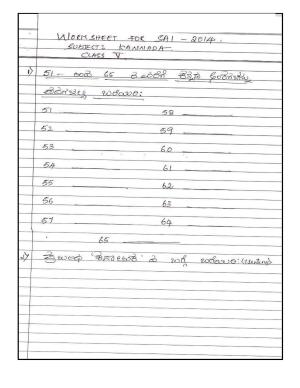 WORKSHEET FOR SA1 - 2014.
SUBJECT: KANNADA
CLASS V
1) 51 - ರಿಂದ 65 ರ ವರೆಗೆ ಕನ್ನಡ
ಬರೆಯಿರಿ:
51 58
52 59
53 60
54 61
55 62
56 63
57 64
65
2) ಬಗ್ಗೆ ಬರೆಯಿರಿ: